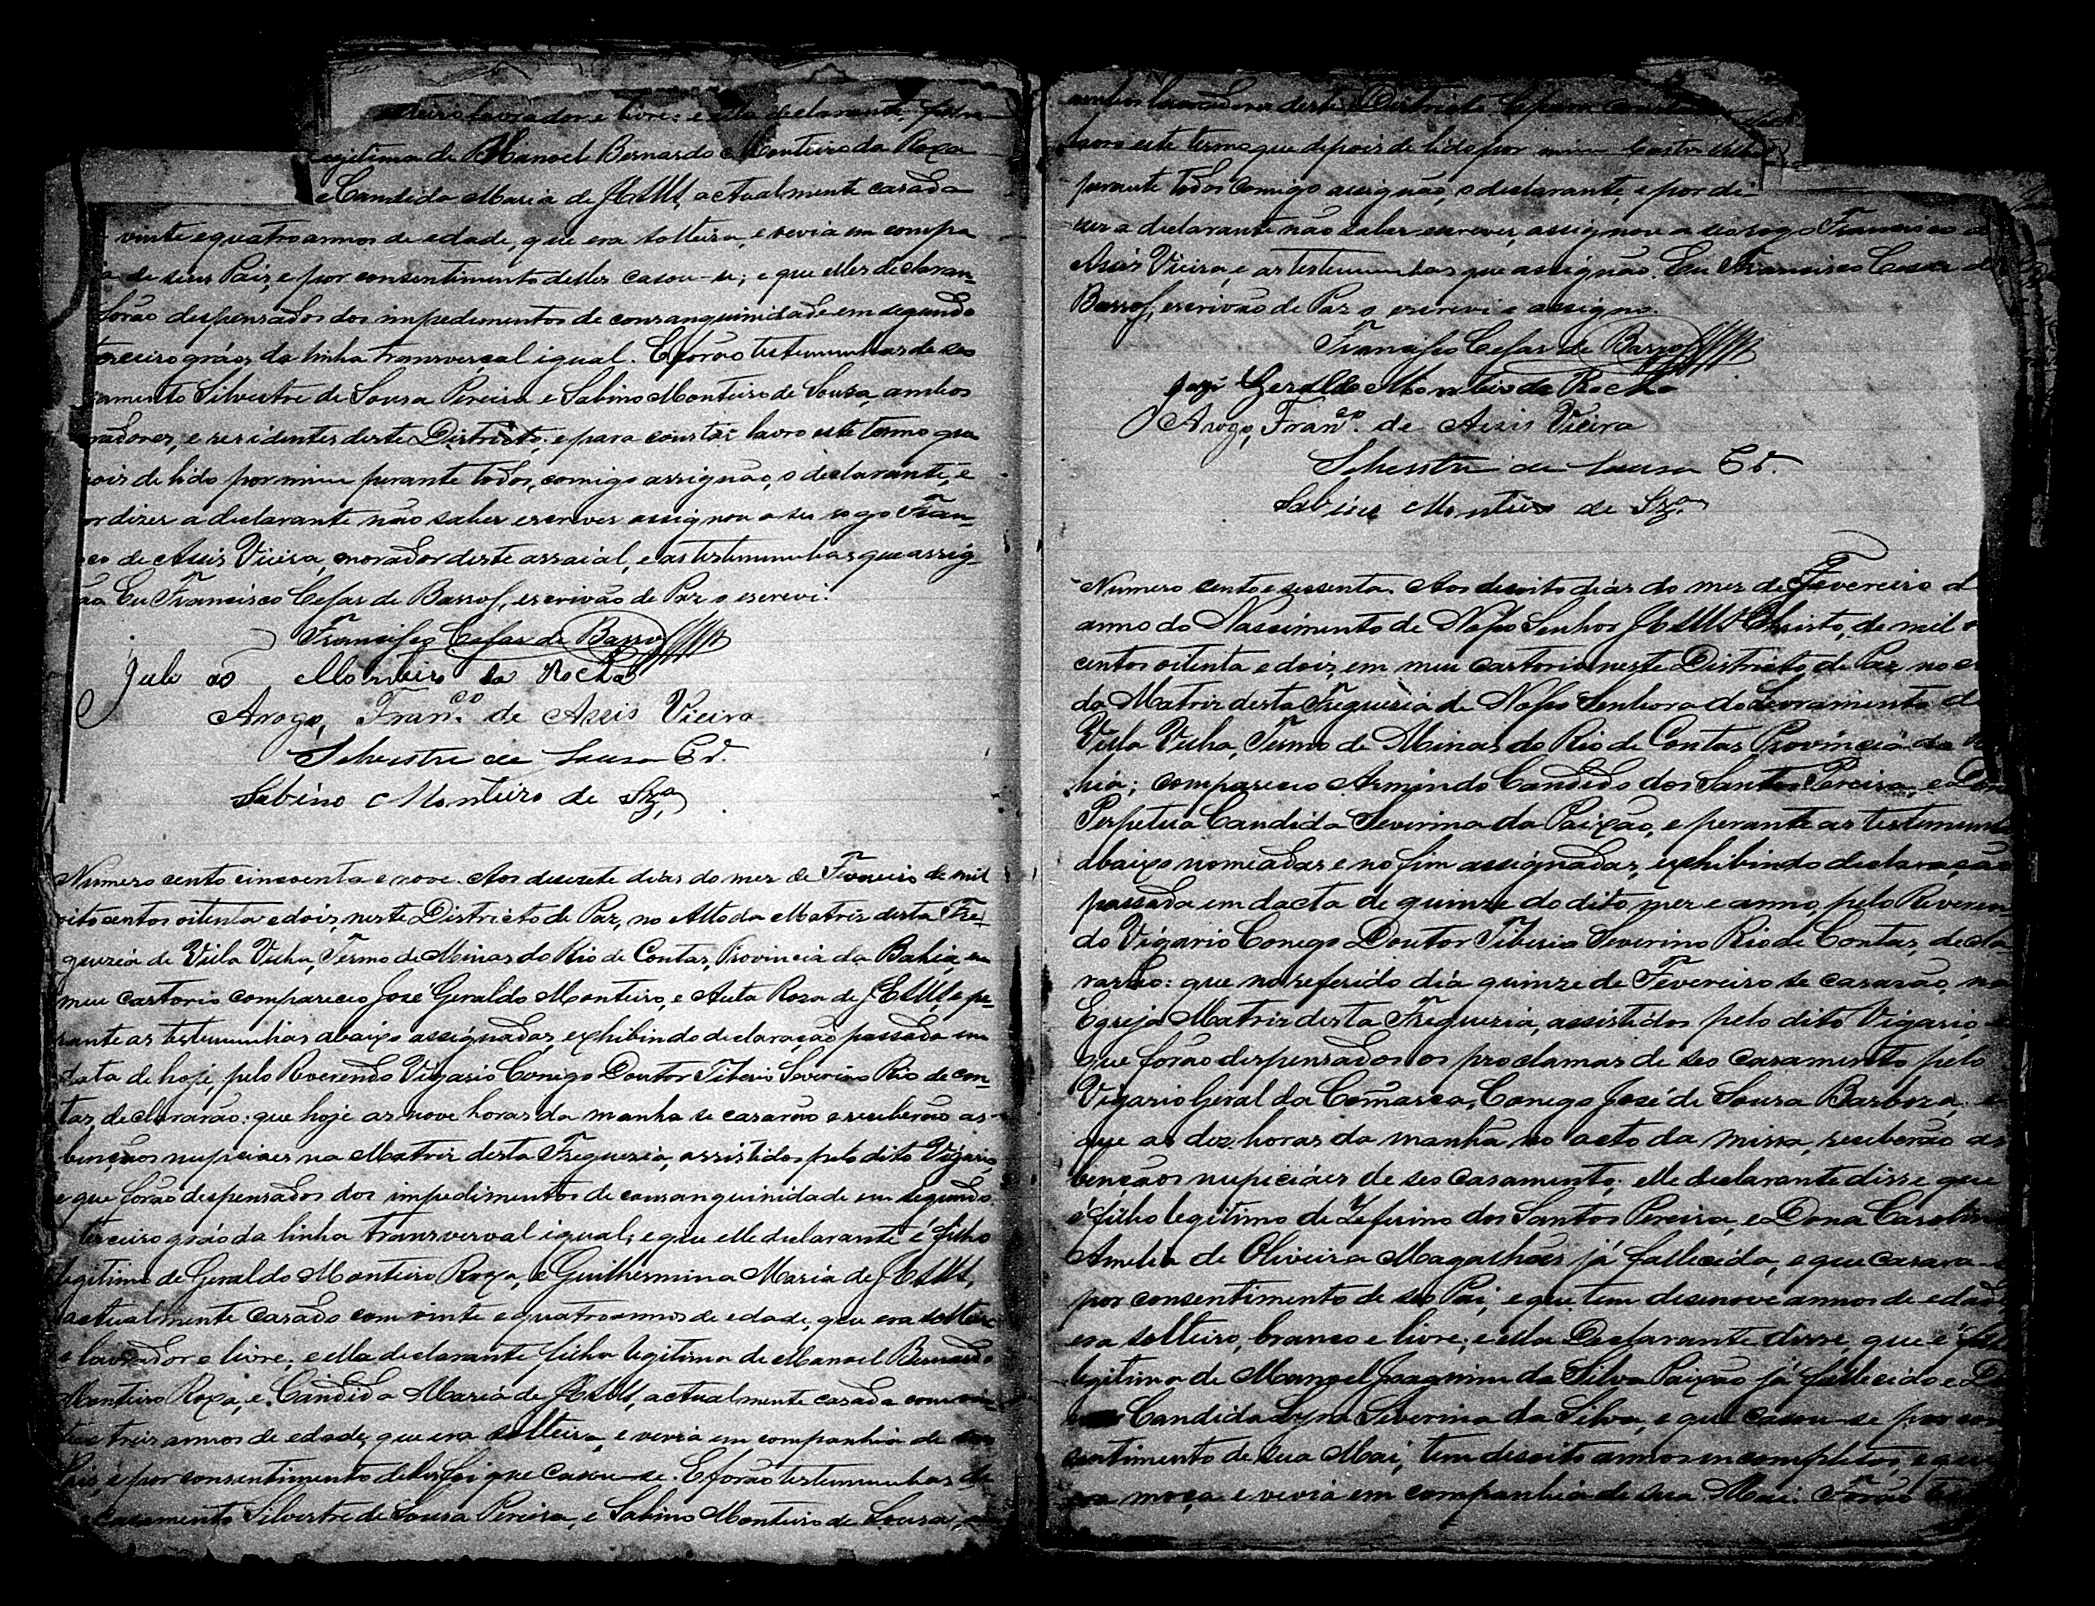 lavrador e livre; e ella declarante filha
legitima de Manoel Bernardo Monteiro da Roxa
e Candida Maria de JESUS, actualmente casada
vinte e quatro annos de edade, que era solteira, e vevia em compa
de seus Pais, e por consentimento delles casou-se; e que elles declaran-
forão despensados dos impedimentos de consanguinidade em segundo
terceiro gráos da linha transverçal igual. E forão testemunhas de seo
samento Silvestre de Sousa Pereira e Sabino Monteiro de Sousa, ambos
radores, e residentes deste Districto, e para constar lavro este termo que
pois de lido por mim perante todos, comigo assignão, o declarante, e
or dizer a declarante não saber escrever assignou a seu rogo Fran-
co de Assis Vieira, morador deste arraial, e as testemunhas que assig-
não Eu Francisco Cesar de Barros, escrivão de Paz o escrevi.
Francisco Cesar de Barros
Monteiro da Rocha
Arogo, Fran.co de Assis Vieira
Silvestre de Sousa Pr.
Sabino Monteiro de Sza
Numero cento cincoenta e nove. Aos desesete dias do mez de Fevereiro de mil
oitocentos oitenta e dois, neste Districto de Paz, no Alto da Matriz desta Fre-
guezia de Villa Velha, Termo de Minas do Rio de Contas, Provincia da Bahia, em
meu cartorio compareceo José Geraldo Monteiro, e Auta Roza de JESUS, e pe-
rante as testemunhas abaixo assignadas, exhibindo declaração passada em
data de hoje, pelo Reverendo Vigario Conego Doutor Tiberio Severino Rio de Con-
tas, declararão: que hoje as nove horas da manhã se casarão e receberão as
bençãos nupciaes na Matriz desta Freguezia, assistidos pelo dito Vigario,
e que forão despensados dos impedimentos de consanguinidade em segundo
terceiro gráo da linha transversal igual; e que elle declarante é filho
legitimo de Geraldo Monteiro Roxa, e Guilhermina Maria de JESUS,
actualmente casado com vinte e quatro annos de edade, que era solteiro
e lavrador e livre; e ella declarante filha legitima de Manoel Bernardo
Monteiro Roxa, e Candida Maria de JESUS, actualmente casada com vin
tres annos de edade, que era solteira, e vevia em companhia de seos
Pais, e por consentimento delles foi que casou-se. E forão testemunhas de
casamento Silvestre de Sousa Pereira, e Sabino Monteiro de Sousa,
ambos lavradores deste Districto. E para constar
lavro este termo que depois de lido por mim
perante todos comigo assignão, o declarante, e por di-
zer a declarante não saber escrever, assignou a seo rogo Francisco de
Assis Vieira, e as testemunhas que assignão. Eu Francisco Cesar de
Barros, escrivão de Paz o escrevi e assigno.
Francisco Cesar de Barros
José Geraldo Monteiro da Rocha
Arogo, Fran.co de Assis Vieira
Silvestre de Sousa Pr.
Sabino Monteiro de Sza
Numero cento e sessenta. Aos desoito dias do mez de Fevereiro d
anno do Nascimento de Nosso Senhor JESUS Christo, de mil o
centos oitenta e dois, em meu cartorio neste Districto de Paz no
da Matriz desta Freguezia de Nossa Senhora do Livramento d
Villa Velha, Termo de Minas do Rio de Contas Provincia da Ba
hia; compareceo Armindo Candido dos Santos Pereira, e Dona
Perpetua Candida Severina da Paixão, e perante as testemunhas
abaixo nomeadas e no fim assignadas, exhibindo declaração
passada em dacta de quinze do dito mez e anno, pelo Reveren
do Vigario Conego Doutor Tiberio Severino Rio de Contas, decla-
rarão: que no referido dia quinze de Fevereiro se casarão, na
Egreja Matriz desta Freguezia, assistidos pelo dito Vigario,
que forão despensados os proclamas de seo casamento pelo
Vigario Geral da Comarca, Conego José de Sousa Barboza; e
que as dez horas da manhã no acto da missa, receberão as
bençãos nupiciáes de seo casamento; elle declarante disse que
é filho legitimo de Zeferino dos Santos Pereira, e Dona Carolina
Amelia de Oliveira Magalhães já fallecida, e que casara-se
por consentimento de seo Pai, e que tem desenove annos de edade,
era solteiro, branco e livre; e ella Declarante disse, que é filha
legitima de Manoel Joaquim da Silva Paixão já fallecido e D
Candida Lyra Severina da Silva, e que casou-se por con
sentimento de sua Mai, tem desoito annos incompletos, e que
era moça e vivia em companhia de sua Mai. Forão